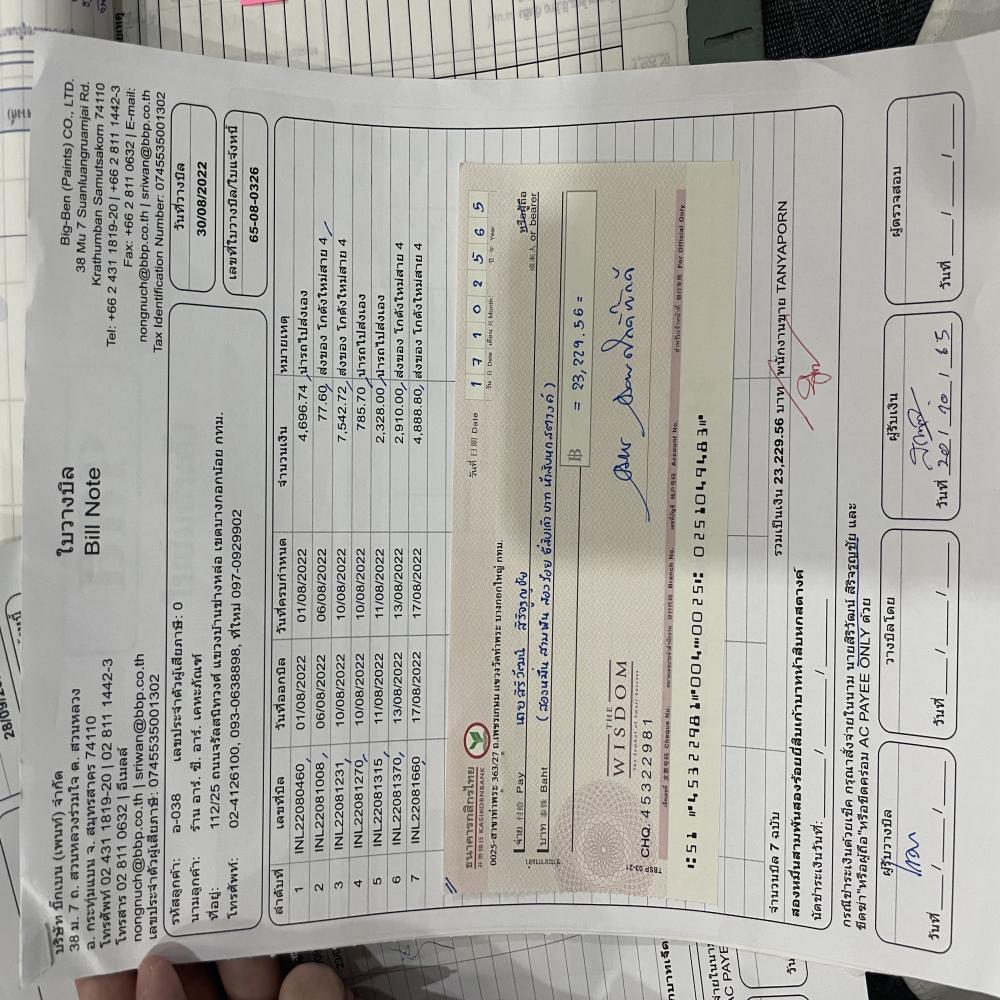 บริษัท บิ๊กเบน (เพนท์) จำกัด
38 ม. 7 ถ. สวนหลวงร่วมใจ ต. สวนหลวง
อ. กระทุ่มแบน จ. สมุทรสาคร 74110
โทรศัพท์ 02 431 1819-20 | 02 811 1442-3
โทรสาร 02 811 0632 | อีเมลล์
nongnuch@bbp.co.th | sriwan@bbp.co.th
เลขประจำตัวผู้เสียภาษี: 0745535001302
ใบวางบิล
Bill Note
Big-Ben (Paints) CO., LTD.
38 Mu 7 Suanluangruamjai Rd.
Krathumban Samutsakorn 74110
Tel: +66 2 431 1819-20 | +66 2 811 1442-3
Fax: +66 2 811 0632 | E-mail:
nongnuch@bbp.co.th | sriwan@bbp.co.th
Tax Identification Number: 0745535001302
รหัสลูกค้า: อ-038 เลขประจำตัวผู้เสียภาษี: 0
นามลูกค้า: ร้าน อาร์. ซี. อาร์. เคหะภัณฑ์
ที่อยู่: 112/25 ถนนจรัลสนิทวงศ์ แขวงบ้านช่างหล่อ เขตบางกอกน้อย กทม.
โทรศัพท์: 02-4126100, 093-0638898, ที่ใหม่ 097-0929902
วันที่วางบิล
30/08/2022
เลขที่ใบวางบิล/ใบแจ้งหนี้
65-08-0326
ลำดับที่ เลขที่บิล วันที่ออกบิล วันที่ครบกำหนด จำนวนเงิน หมายเหตุ
1 INL22080460 01/08/2022 01/08/2022 4,696.74 นำรถไปส่งเอง
2 INL22081008 06/08/2022 06/08/2022 77.60 ส่งของ โกดังใหม่สาย 4
3 INL22081231 10/08/2022 10/08/2022 7,542.72 ส่งของ โกดังใหม่สาย 4
4 INL22081270 10/08/2022 10/08/2022 785.70 นำรถไปส่งเอง
5 INL22081315 11/08/2022 11/08/2022 2,328.00 นำรถไปส่งเอง
6 INL22081370 13/08/2022 13/08/2022 2,910.00 ส่งของ โกดังใหม่สาย 4
7 INL22081660 17/08/2022 17/08/2022 4,888.80 ส่งของ โกดังใหม่สาย 4
ธนาคารกสิกรไทย
KASIKORNBANK
0025-สาขาท่าพระ 363/27 ถ.เพชรเกษม แขวงวัดท่าพระ บางกอกใหญ่ กทม.
วันที่ 日期 Date 1 7 1 0 2 5 6 5
วัน 日 Date เดือน 月 Month ปี 年 Year
จ่าย 付给 Pay นายสิริวัฒน์ สิริจรูญชัย หรือผู้ถือ
或来人 or bearer
บาท 泰铢 Baht (สองหมื่นสามพันสองร้อยยี่สิบเก้าบาทห้าสิบหกสตางค์)
฿ = 23,229.56 =
THE
WISDOM
The Symbol of Your Success
เช็คเลขที่ 支票号码 Cheque No. Branch No. เลขที่บัญชี 账户号码 Account No. สำหรับเจ้าหน้าที่ For Official Only
CHQ. 45322981
TBSP 03-21
51 45322981 004 0025 0251049483
จำนวนบิล 7 ฉบับ รวมเป็นเงิน 23,229.56 บาท พนักงานขาย TANYAPORN
สองหมื่นสามพันสองร้อยยี่สิบเก้าบาทห้าสิบหกสตางค์
นัดชำระเงินวันที่: / /
กรณีชำระเงินด้วยเช็ค กรุณาสั่งจ่ายในนาม นายสิริวัฒน์ สิริจรูญชัย และ
ขีดฆ่า"หรือผู้ถือ"หรือขีดคร่อม AC PAYEE ONLY ด้วย
ผู้รับวางบิล วางบิลโดย ผู้รับเงิน ผู้ตรวจสอบ
วันที่ / / วันที่ / / วันที่ 20/10/65 วันที่ / /